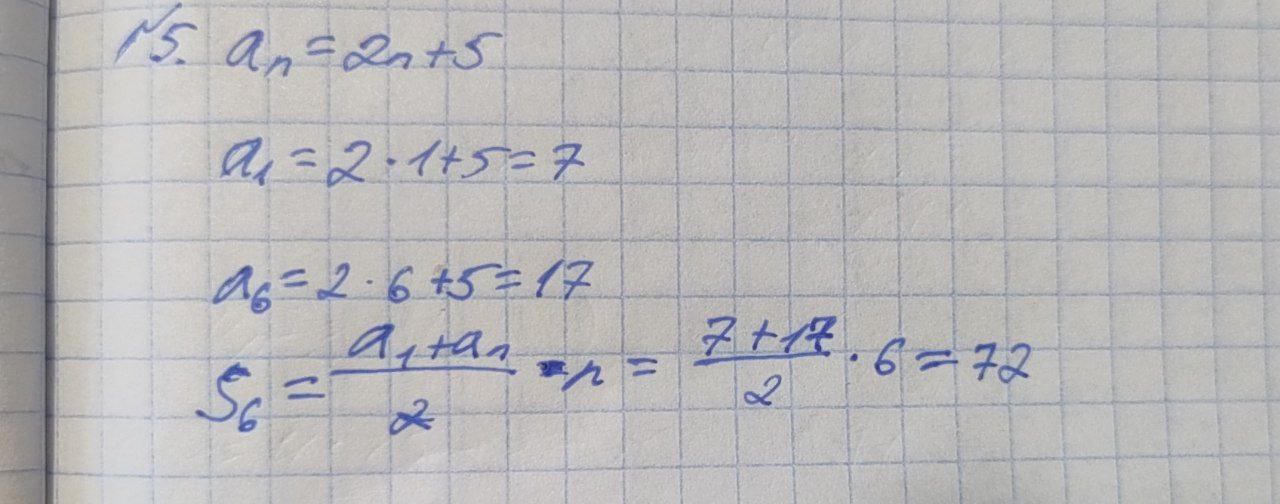 №5. aₙ = 2n+5
a₁ = 2 · 1+5 = 7
a₆ = 2 · 6 +5 = 17
S₆ = (a₁+aₙ)/2 · n = (7+17)/2 · 6 = 72